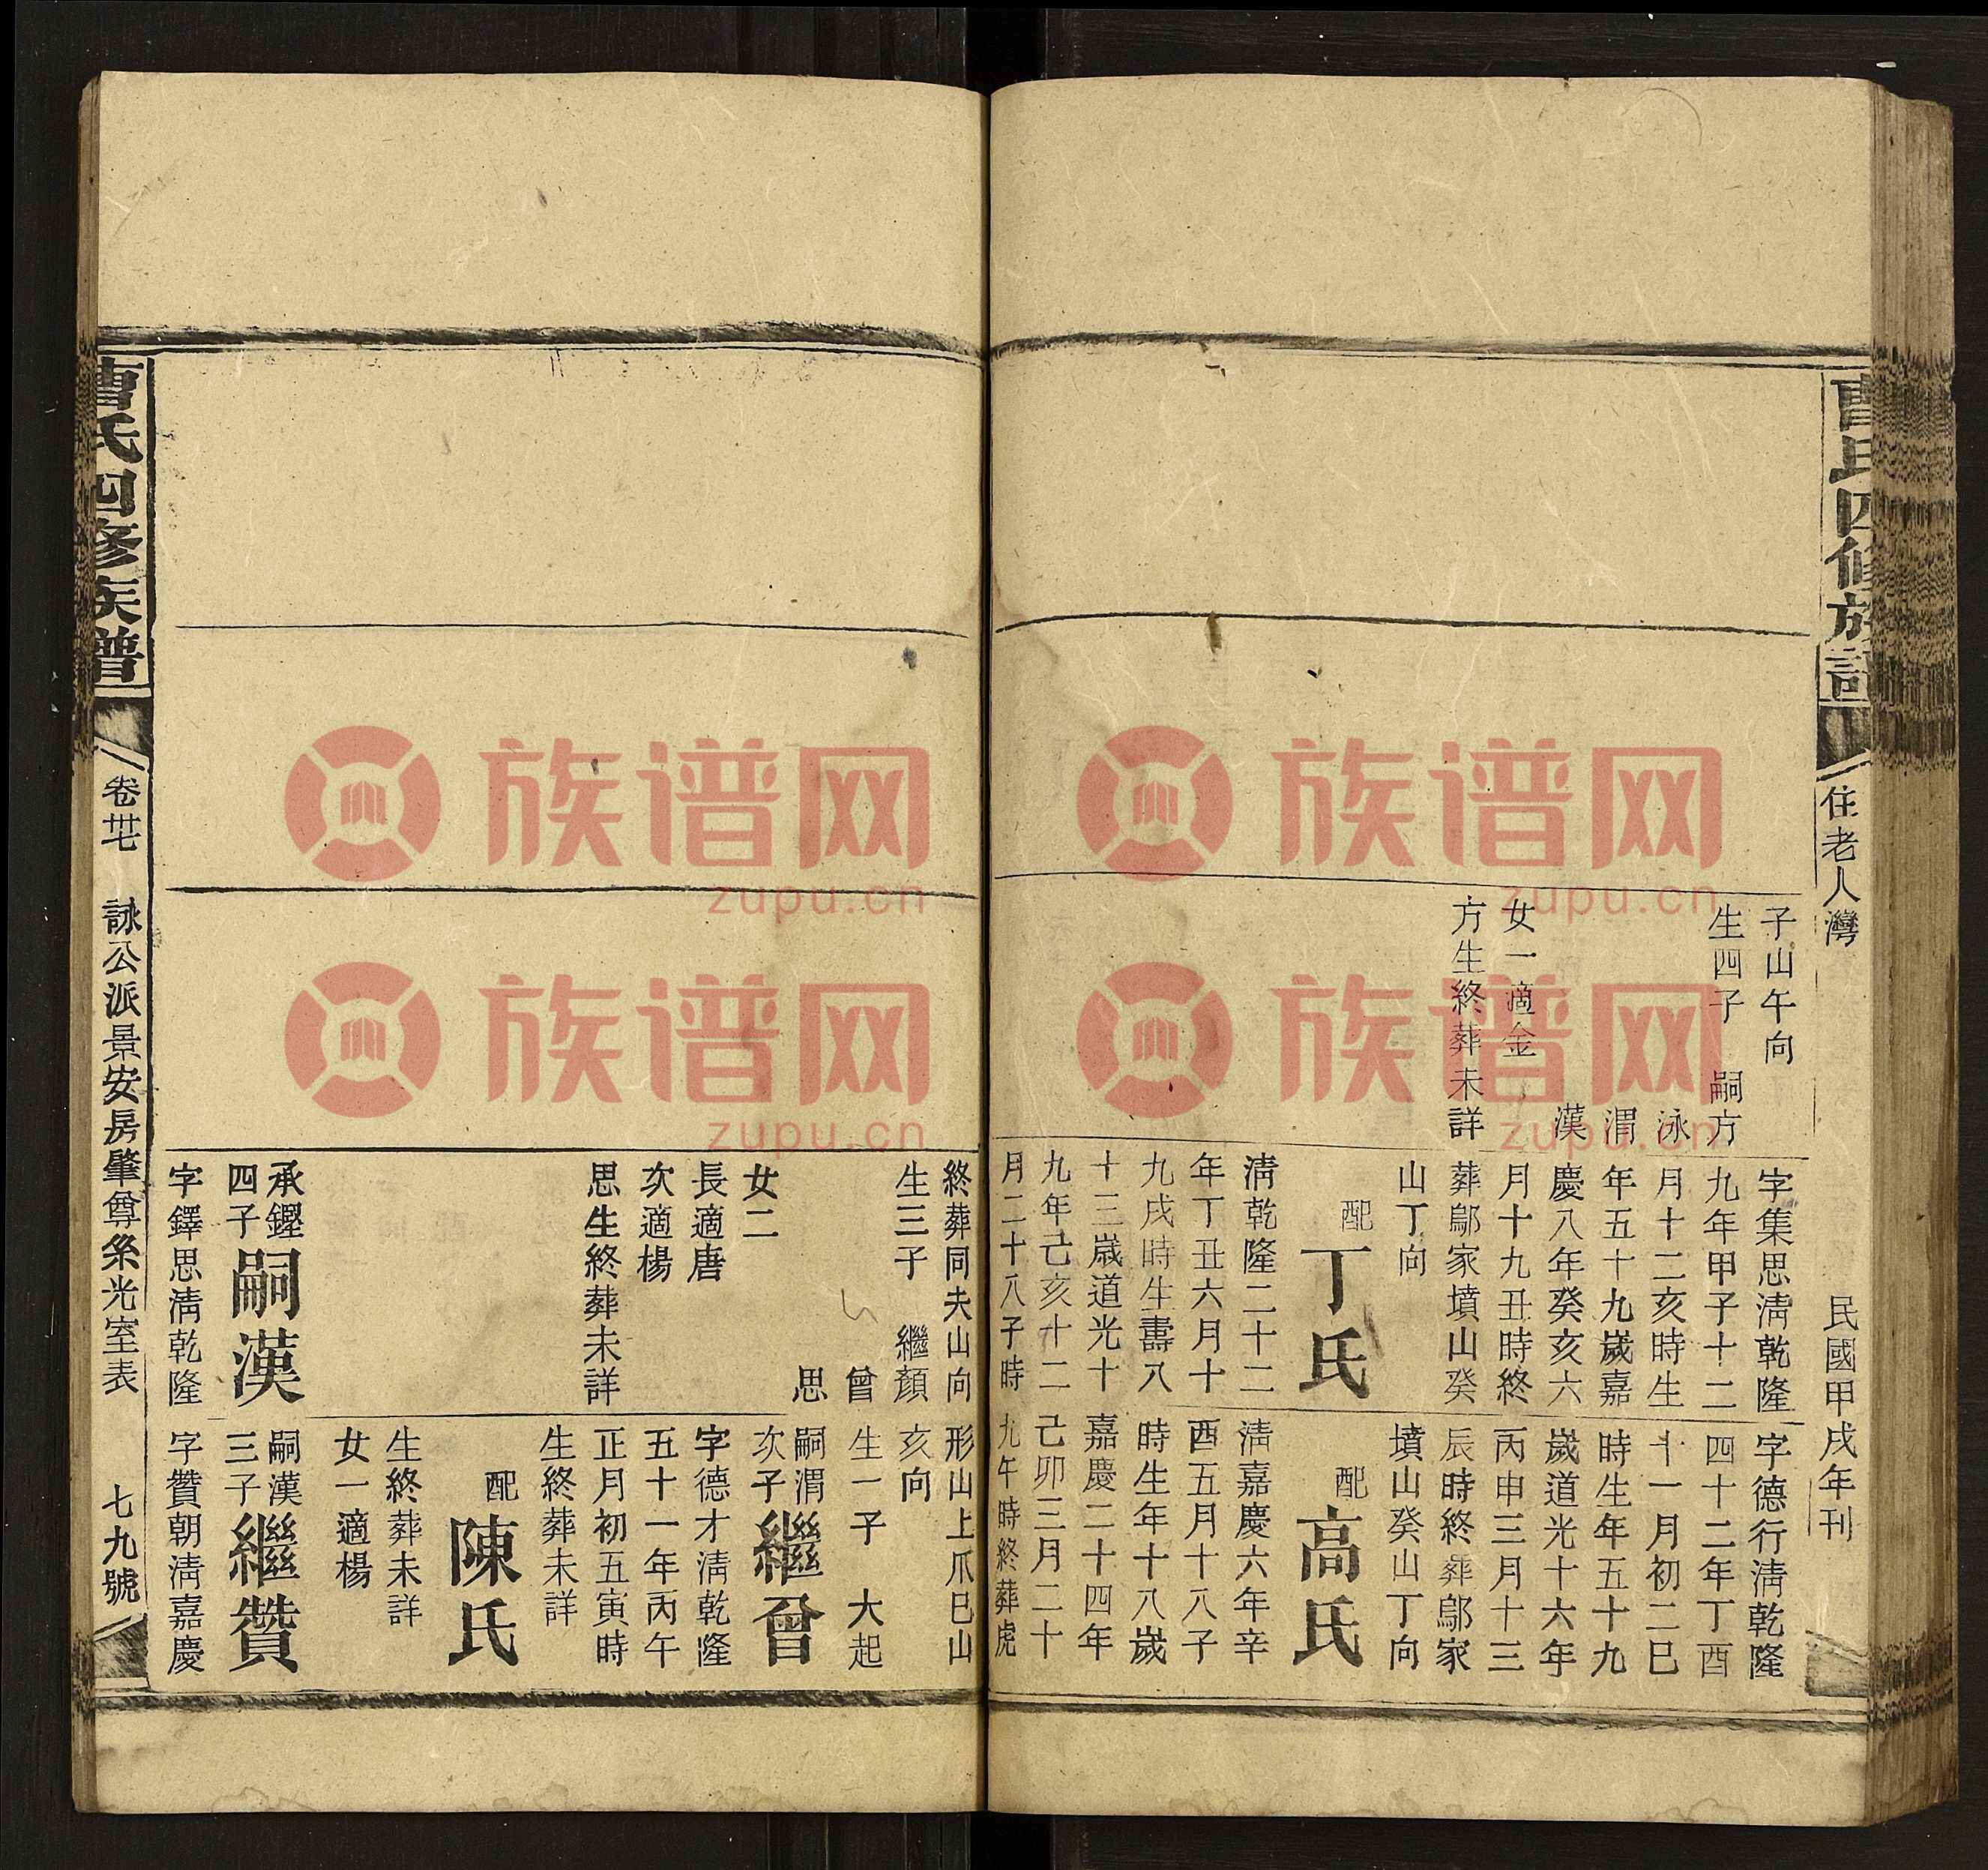 曹氏四修族譜
住老人灣
民國甲戌年刊
子山午向
生四子 嗣方
泳
渭
漢
女一適金
方生終葬未詳
字集思淸乾隆
九年甲子十二
月十二亥時生
年五十九歲嘉
慶八年癸亥六
月十九丑時終
葬鄔家墳山癸
山丁向
配
丁氏
淸乾隆二十二
年丁丑六月十
九戌時生壽八
十三歲道光十
九年己亥十二
月二十八子時
字德行淸乾隆
四十二年丁酉
十一月初二巳
時生年五十九
歲道光十六年
丙申三月十三
辰時終葬鄔家
墳山癸山丁向
配
高氏
淸嘉慶六年辛
酉五月十八子
時生年十八歲
嘉慶二十四年
己卯三月二十
九午時終葬虎
終葬同夫山向
生三子 繼顏
曾
思
女二
長適唐
次適楊
思生終葬未詳
承鏗
四子
嗣漢
字鐸思淸乾隆
形山上爪巳山
亥向
生一子 大起
嗣渭
次子
繼曾
字德才淸乾隆
五十一年丙午
正月初五寅時
生終葬未詳
配
陳氏
生終葬未詳
女一適楊
嗣漢
三子
繼贊
字贊朝淸嘉慶
曹氏四修族譜
卷廿七
詠公派景安房肇尊系光室表
七九號
族谱网
zupu.cn
族谱网
zupu.cn
族谱网
zupu.cn
族谱网
zupu.cn